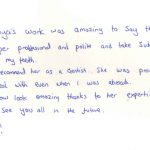 work was amazing to say th
professional and polite and take
my teeth.
recommend her as a dentist She was pro
with even when I was abroad.
look amazing thanks to her experti
See you all in the future.